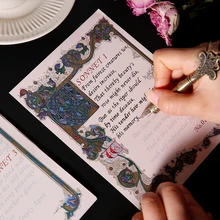 SONNET 1
From fairest creatures we
desire increase,
That thereby beauty's
rose might never die,
But as the riper should
by time decease,
His tender heir might
his memory
SONNET 3